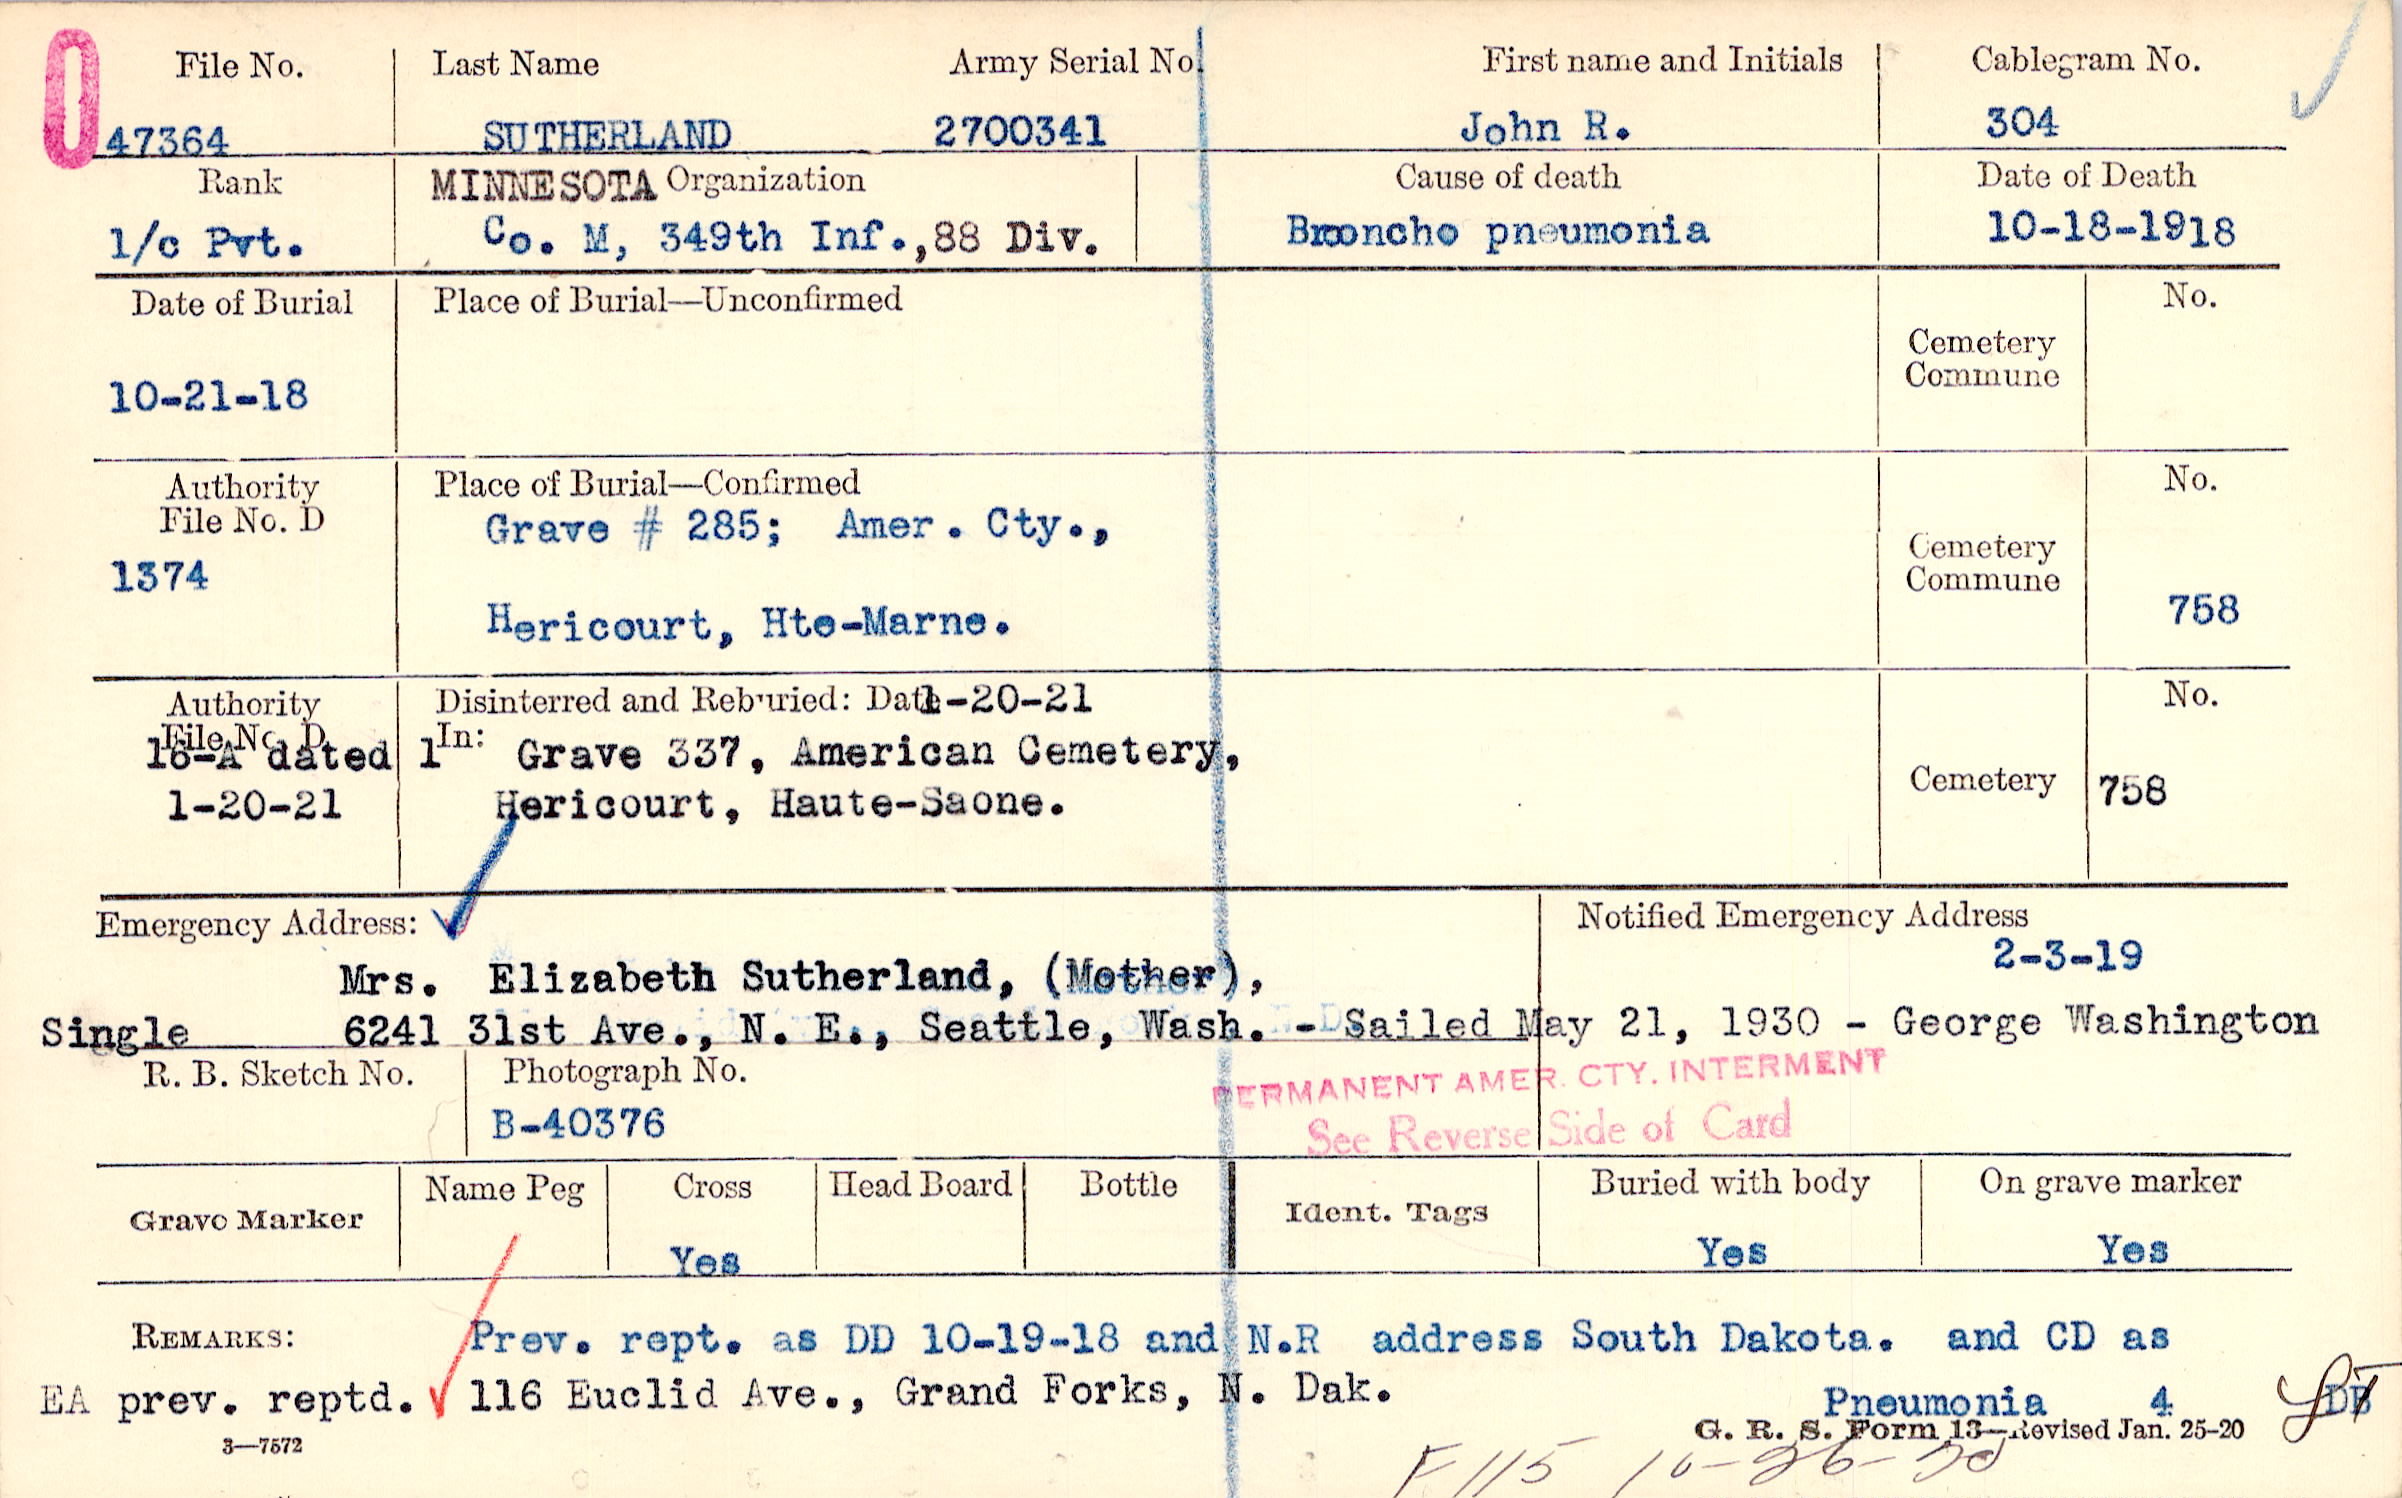 File No. Last Name Army Serial No. First name and Initials Cablegram No.
47364 SUTHERLAND 2700341 John R. 304
Rank MINNESOTA Organization Cause of death Date of Death
1/c Pvt. Co. M, 349th Inf.,88 Div. Broncho pneumonia 10-18-1918
Date of Burial Place of Burial—Unconfirmed No.
Cemetery
Commune
10-21-18
Authority Place of Burial—Confirmed No.
File No. D Grave # 285; Amer. Cty.,
Cemetery
1374 Commune
Hericourt, Hte-Marne. 758
Authority Disinterred and Reburied: Date 1-20-21 No.
File No. D In:
16-A dated 1 Grave 337, American Cemetery,
1-20-21 Hericourt, Haute-Saone. Cemetery 758
Emergency Address: Notified Emergency Address
2-3-19
Mrs. Elizabeth Sutherland, (Mother),
Single 6241 31st Ave., N. E., Seattle, Wash. - Sailed May 21, 1930 - George Washington
R. B. Sketch No. Photograph No. PERMANENT AMER. CTY. INTERMENT
B-40376 See Reverse Side of Card
Name Peg Cross Head Board Bottle Buried with body On grave marker
Grave Marker Ident. Tags
Yes Yes Yes
REMARKS: Prev. rept. as DD 10-19-18 and N.R address South Dakota. and CD as
EA prev. reptd. 116 Euclid Ave., Grand Forks, N. Dak. Pneumonia 4
3—7572 G. R. S. Form 13—Revised Jan. 25-20
F115 10-26-20